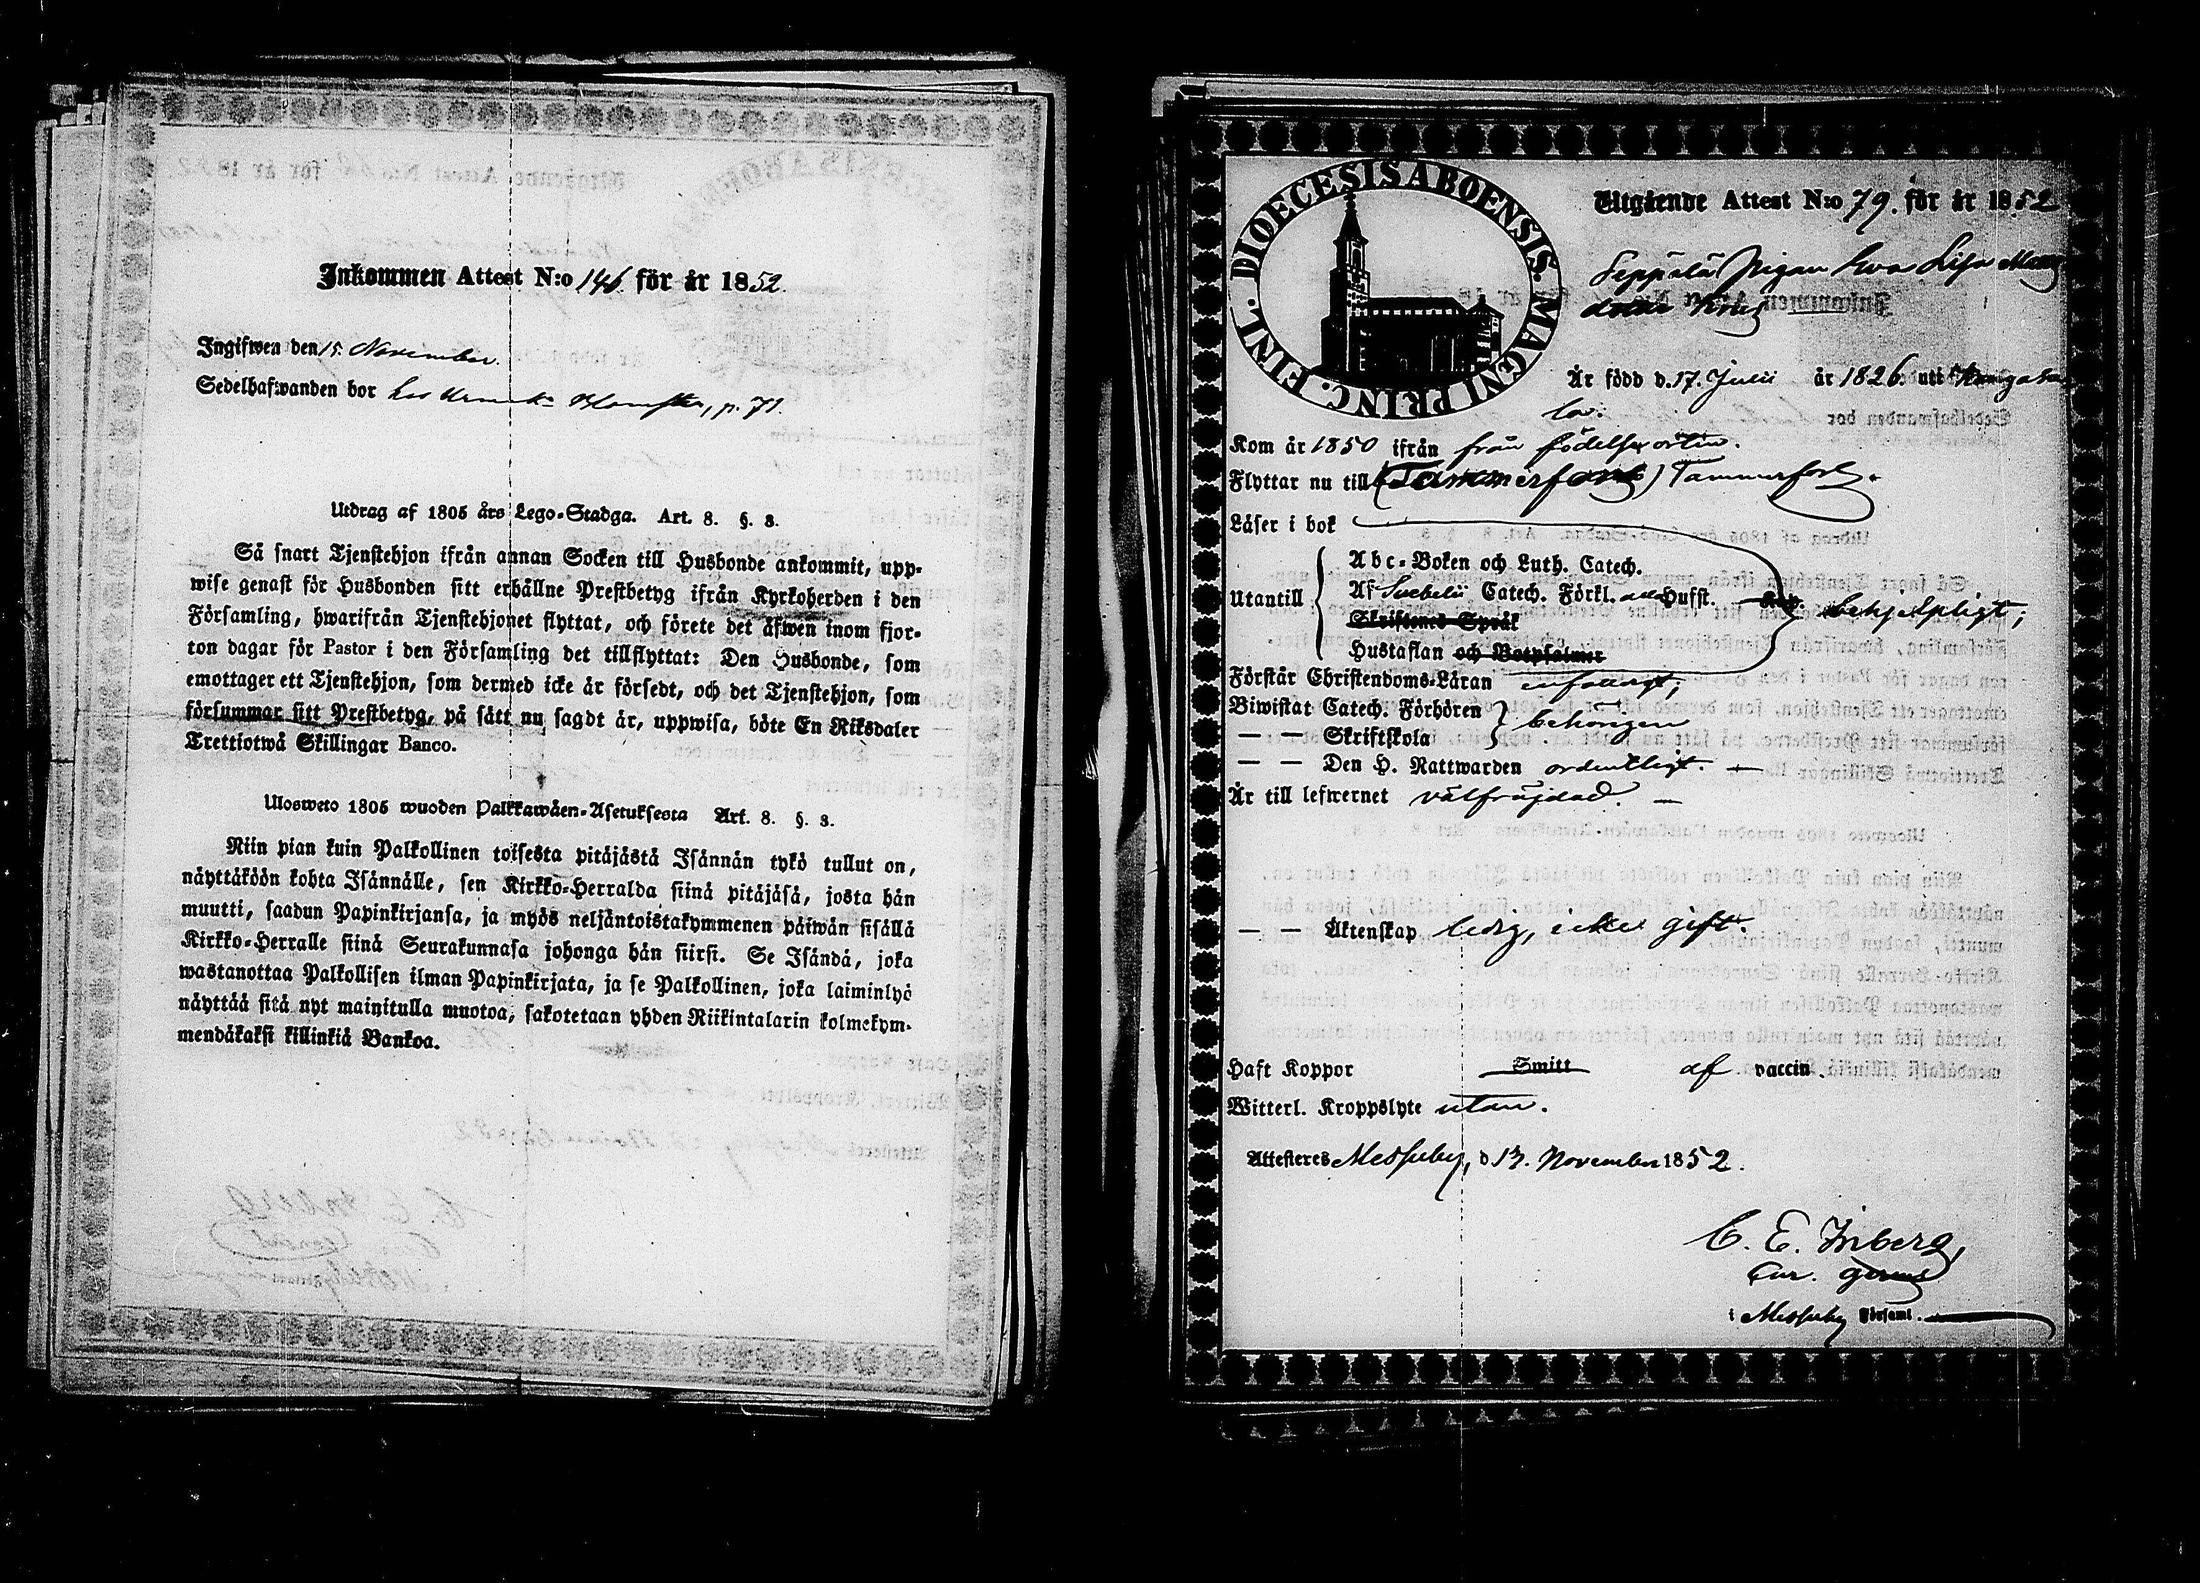 Inkommen Attest N:o 146. för år 1852.
Ingifwen den 15. November.
Sedelhafwanden bor hos p. 71.
Utdrag af 1805 års Lego-Stadga. Art. 8. §. 3.
Så snart Tjenstehjon ifrån annan Socken till Husbonde ankommit, upp-
wise genast för Husbonden sitt erhållne Prestbetyg ifrån Kyrkoherden i den
Församling, hwarifrån Tjenstehjonet flyttat, och förete det äfwen inom fjor-
ton dagar för Pastor i den Församling det tillflyttat: Den Husbonde, som
emottager ett Tjenstehjon, som dermed icke är försedt, och det Tjenstehjon, som
försummar sitt Prestbetyg, på sätt nu sagdt är, uppwisa, böte En Riksdaler
Trettiotwå Skillingar Banco.
Ulosweto 1805 wuoden Palkkawäen-Asetuksesta Art. 8. §. 3.
Niin pian kuin Palkollinen toisesta pitäjästä Isännän tykö tullut on,
näyttäköön kohta Isännälle, sen Kirkko-Herralda siinä pitäjäsä, josta hän
muutti, saadun Papinkirjansa, ja myös neljäntoistakymmenen päiwän sisällä
Kirkko-Herralle siinä Seurakunnasa johonga hän siirsi. Se Isändä, joka
wastanottaa Palkollisen ilman Papinkirjata, ja se Palkollinen, joka laiminlyö
näyttää sitä nyt mainitulla muotoa, sakotetaan yhden Riikintalarin kolmekym-
mendäkaksi killinkiä Bankoa.
DIOECESIS ABOENSIS MAGNI PRINC. FINL.
Utgående Attest N:o 79. för år 1852
Seppälä Pigan Eva Lisa Matts
dotter
Är född d. 17. Julii år 1826. uti Kangasa
la.
Kom år 1850 ifrån från födelseorten.
Flyttar nu till (Tammerfors) Tammerfors.
Läser i bok
Utantill
Abc-Boken och Luth. Catech.
Af Svebelii Catech. Förkl. Hufst. behjelpligt;
Skriftenes Språk
Hustaflan och Botpsalmer
Förstår Christendoms-Läran enfaldigt;
Biwistat Catech. Förhören
— — Skriftskola } behörigen
— — Den H. Nattwarden ordentligt. —
Är till lefwernet välfräjdad. —
— — Äktenskap ledig, icke gift.
Haft Koppor Smitt af vaccin.
Witterl. Kroppslyte utan.
Attesteres Messuby, d 13. November 1852.
C. E. Inberg,
Cur. gerens
i Messuby Församl.